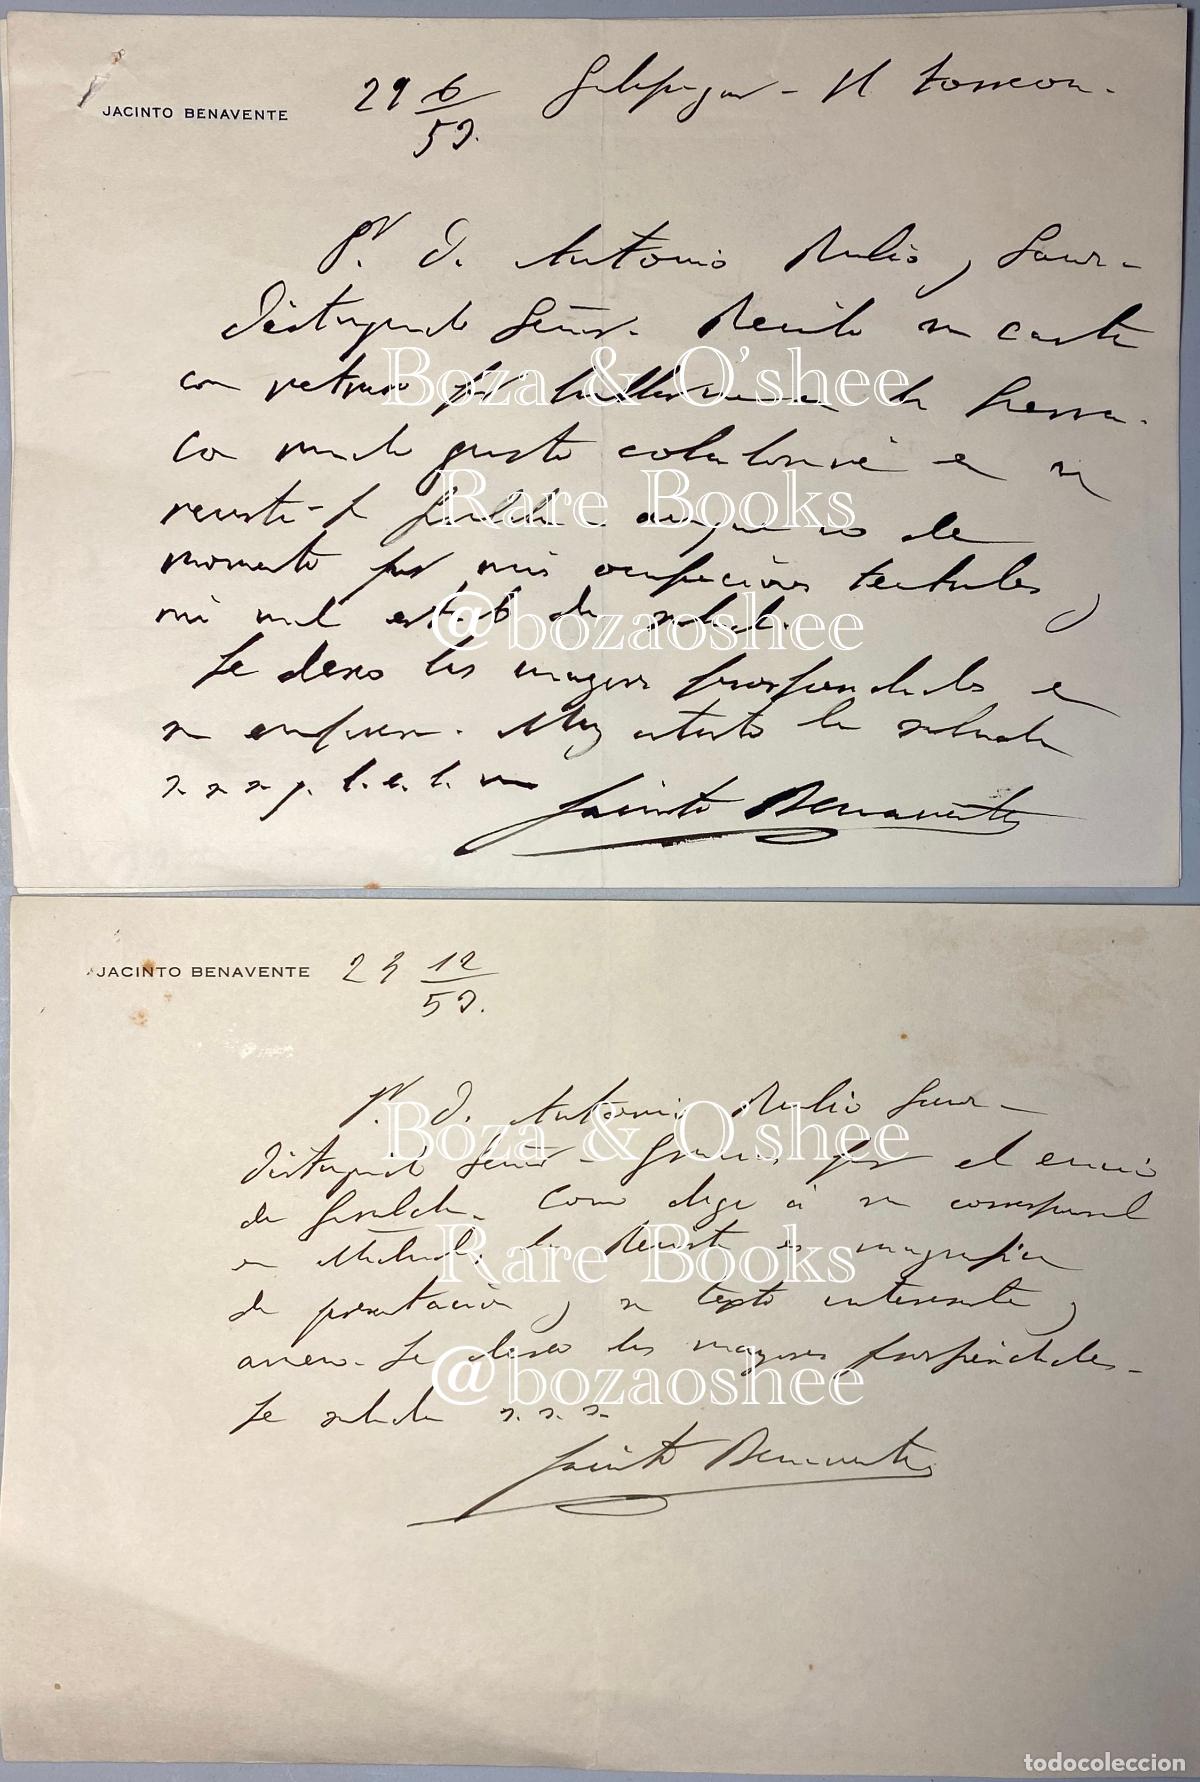 JACINTO BENAVENTE
29 6/52. Galapagar - El Torreon.
Sr. D. Antonio Rubio y
Distinguido Señor - Recibo su carta
con retraso por hallarme en la Sierra.
Con mucho gusto colaboraré en su
revista - aunque no de
momento por mis ocupaciones teatrales y
mi mal estado de salud.
Le deseo las mayores prosperidades en
su empresa. Muy atento le saluda
s. s. s. q. b. s. m.
Jacinto Benavente
JACINTO BENAVENTE
23 12/52.
Sr. D. Antonio Rubio
Distinguido Señor - Gracias por el envio
de Giralda. Como dije á su corresponsal
en Madrid, la Revista es magnifica
de presentación y su texto interesante y
ameno. Le deseo las mayores prosperidades -
Le saluda s. s. s.
Jacinto Benavente
Boza & O'shee
Rare Books
@bozaoshee
Boza & O'shee
Rare Books
@bozaoshee
todocoleccion